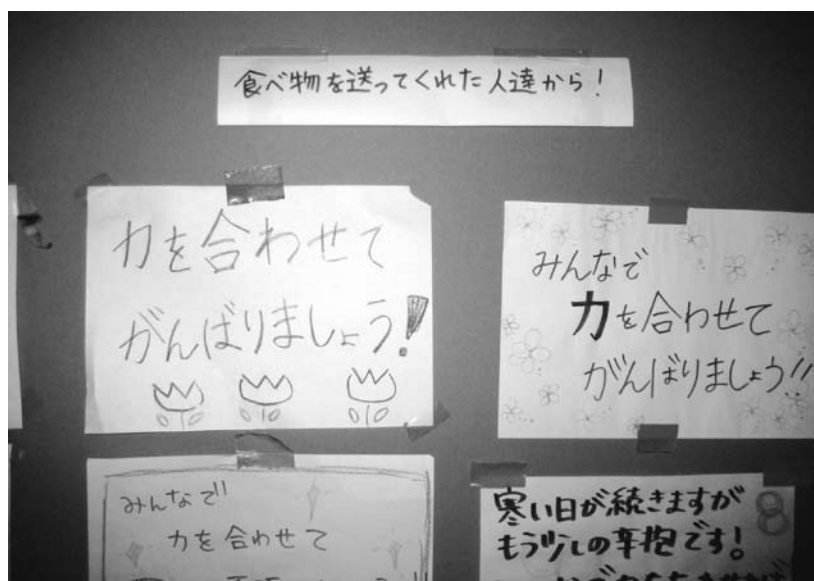 食べ物を送ってくれた人達から！
力を合わせて
がんばりましょう！
みんなで
力を合わせて
がんばりましょう!!
みんなで
力を合わせて
寒い日が続きますが
もう少しの辛抱です！